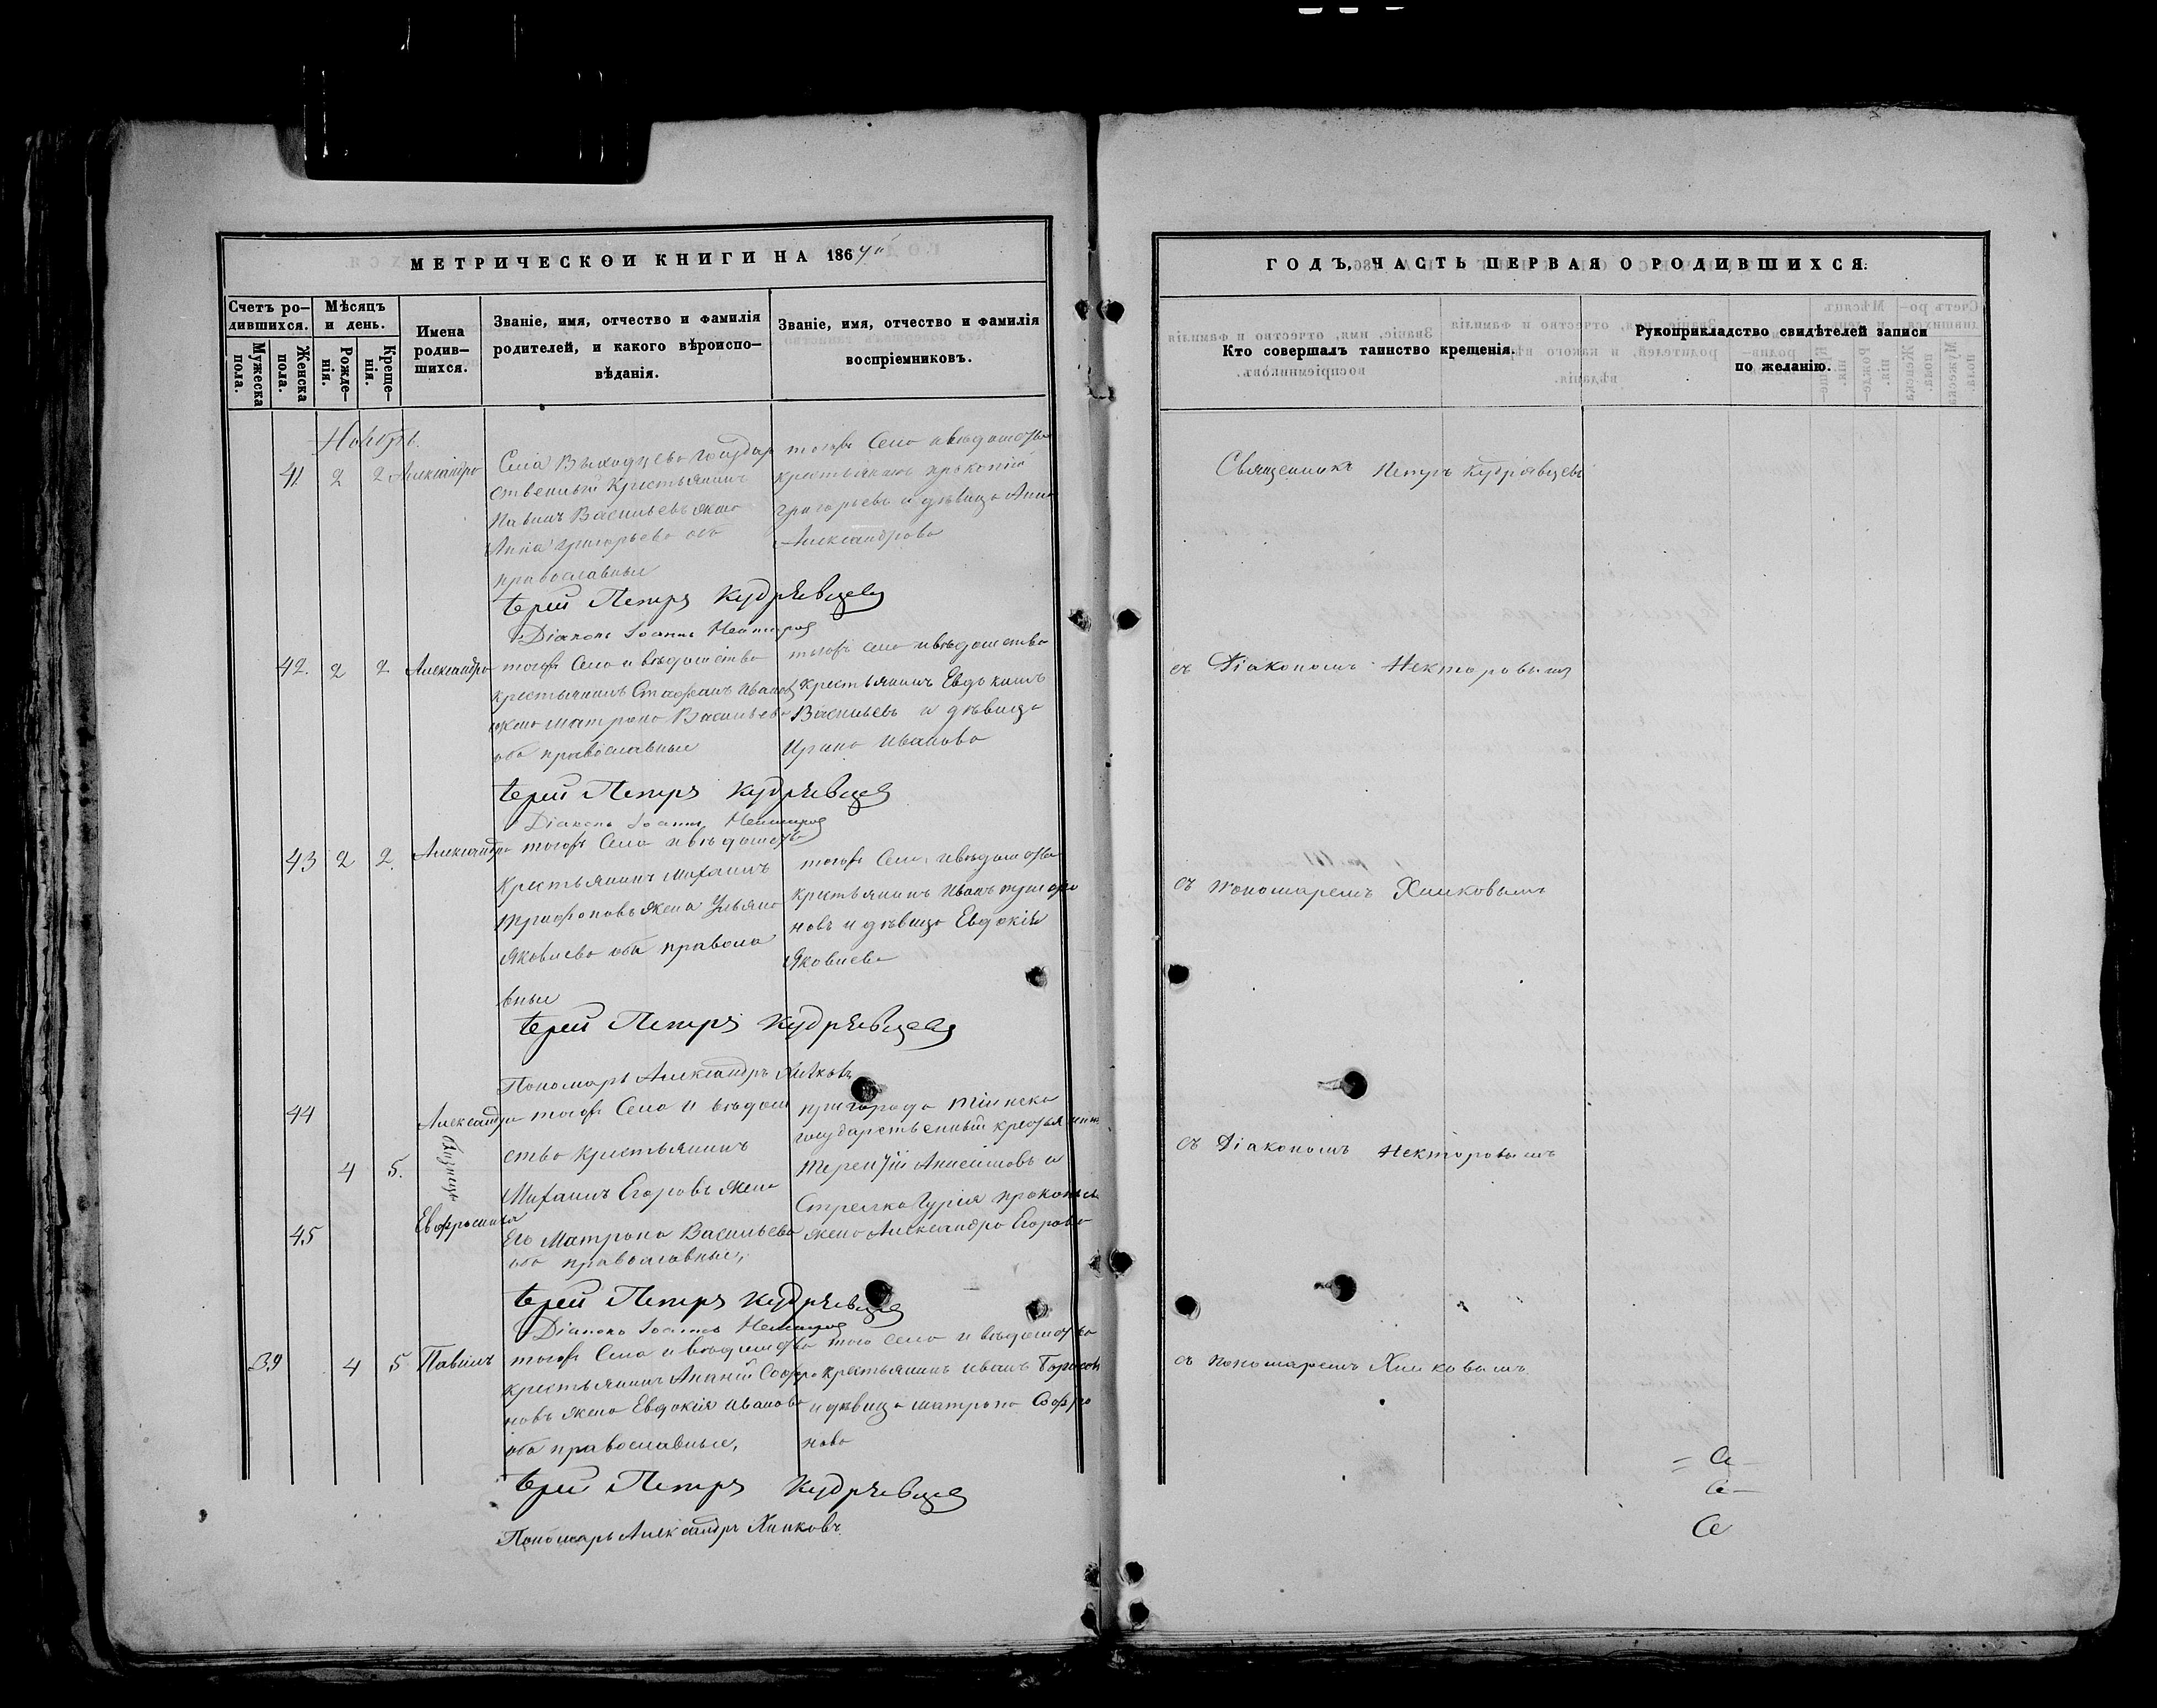 МЕТРИЧЕСКОЙ КНИГИ НА 1867й
Счетъ ро-
дившихся.
Мѣсяцъ
и день.
Мужеска
пола.
Женска
пола.
Рожде-
нія.
Креще-
нія.
Имена
родив-
шихся.
Званіе, имя, отчество и фамилія
родителей, и какого вѣроиспо-
вѣданія.
Званіе, имя, отчество и фамилія
воспріемниковъ.
Ноябрь.
41 2 2 Александра
Села Выходцева Государ
ственный Крестьянинъ
Павилъ Васильевъ жена
Анна Григорьева оба
православные
тогожъ Села и вѣдомства
крестьянинъ Прокопій
Григорьевъ и дѣвица Анна
Александрова
Іерей Петръ Кудрявцевъ
Діаконъ Іоаннъ
42. 2 2 Александра
тогожъ Села и вѣдомства
крестьянинъ Стафанъ Ивановъ
жена Матрона Васильева
оба православные
тогожъ села и вѣдомства
Крестьянинъ Евдокимъ
Васильевъ и дѣвица
Ирина Иванова
Іерей Петръ Кудрявцевъ
Діаконъ Іоаннъ
43 2 2. Александра
тогожъ Села и вѣдомства
Крестьянинъ Михаилъ
Трифоновъ жена Ульяна
Яковлева оба правосла
вные
тогожъ Села и вѣдомства
крестьянинъ Иванъ Трифо
новъ и дѣвица Евдокія
Яковлева
Іерей Петръ Кудрявцевъ
Пономарь Александръ Хилковъ
44 Александра
4 5. близнецы
45 Евфросинія
тогожъ Села и вѣдом
ства Крестьянинъ
Михаилъ Егоровъ жена
Его Матрона Васильева
оба православные,
пригорода Тіинска
государственный крестьянинъ
Терентій Анисимовъ и
Стрелка Гурія Прокопьева
жена Александра Егорова
Іерей Петръ Кудрявцевъ
Діаконъ Іоаннъ
39 4 5 Павилъ
тогожъ Села и вѣдомства
крестьянинъ Ананій Софро
новъ жена Евдокія Иванова
оба православные,
того села и вѣдомства
крестьянинъ Иванъ Борисовъ
и дѣвица Матрона Софро
нова
Іерей Петръ Кудрявцевъ
Пономарь Александръ Хилковъ
ГОДЪ, ЧАСТЬ ПЕРВАЯ О РОДИВШИХСЯ:
Кто совершалъ таинство крещенія.
Рукоприкладство свидѣтелей записи
по желанію.
Священникъ Петръ Кудрявцевъ
съ Діакономъ Некторовымъ
съ пономаремъ Хилковымъ
съ Діакономъ Некторовымъ
съ пономаремъ Хилковымъ